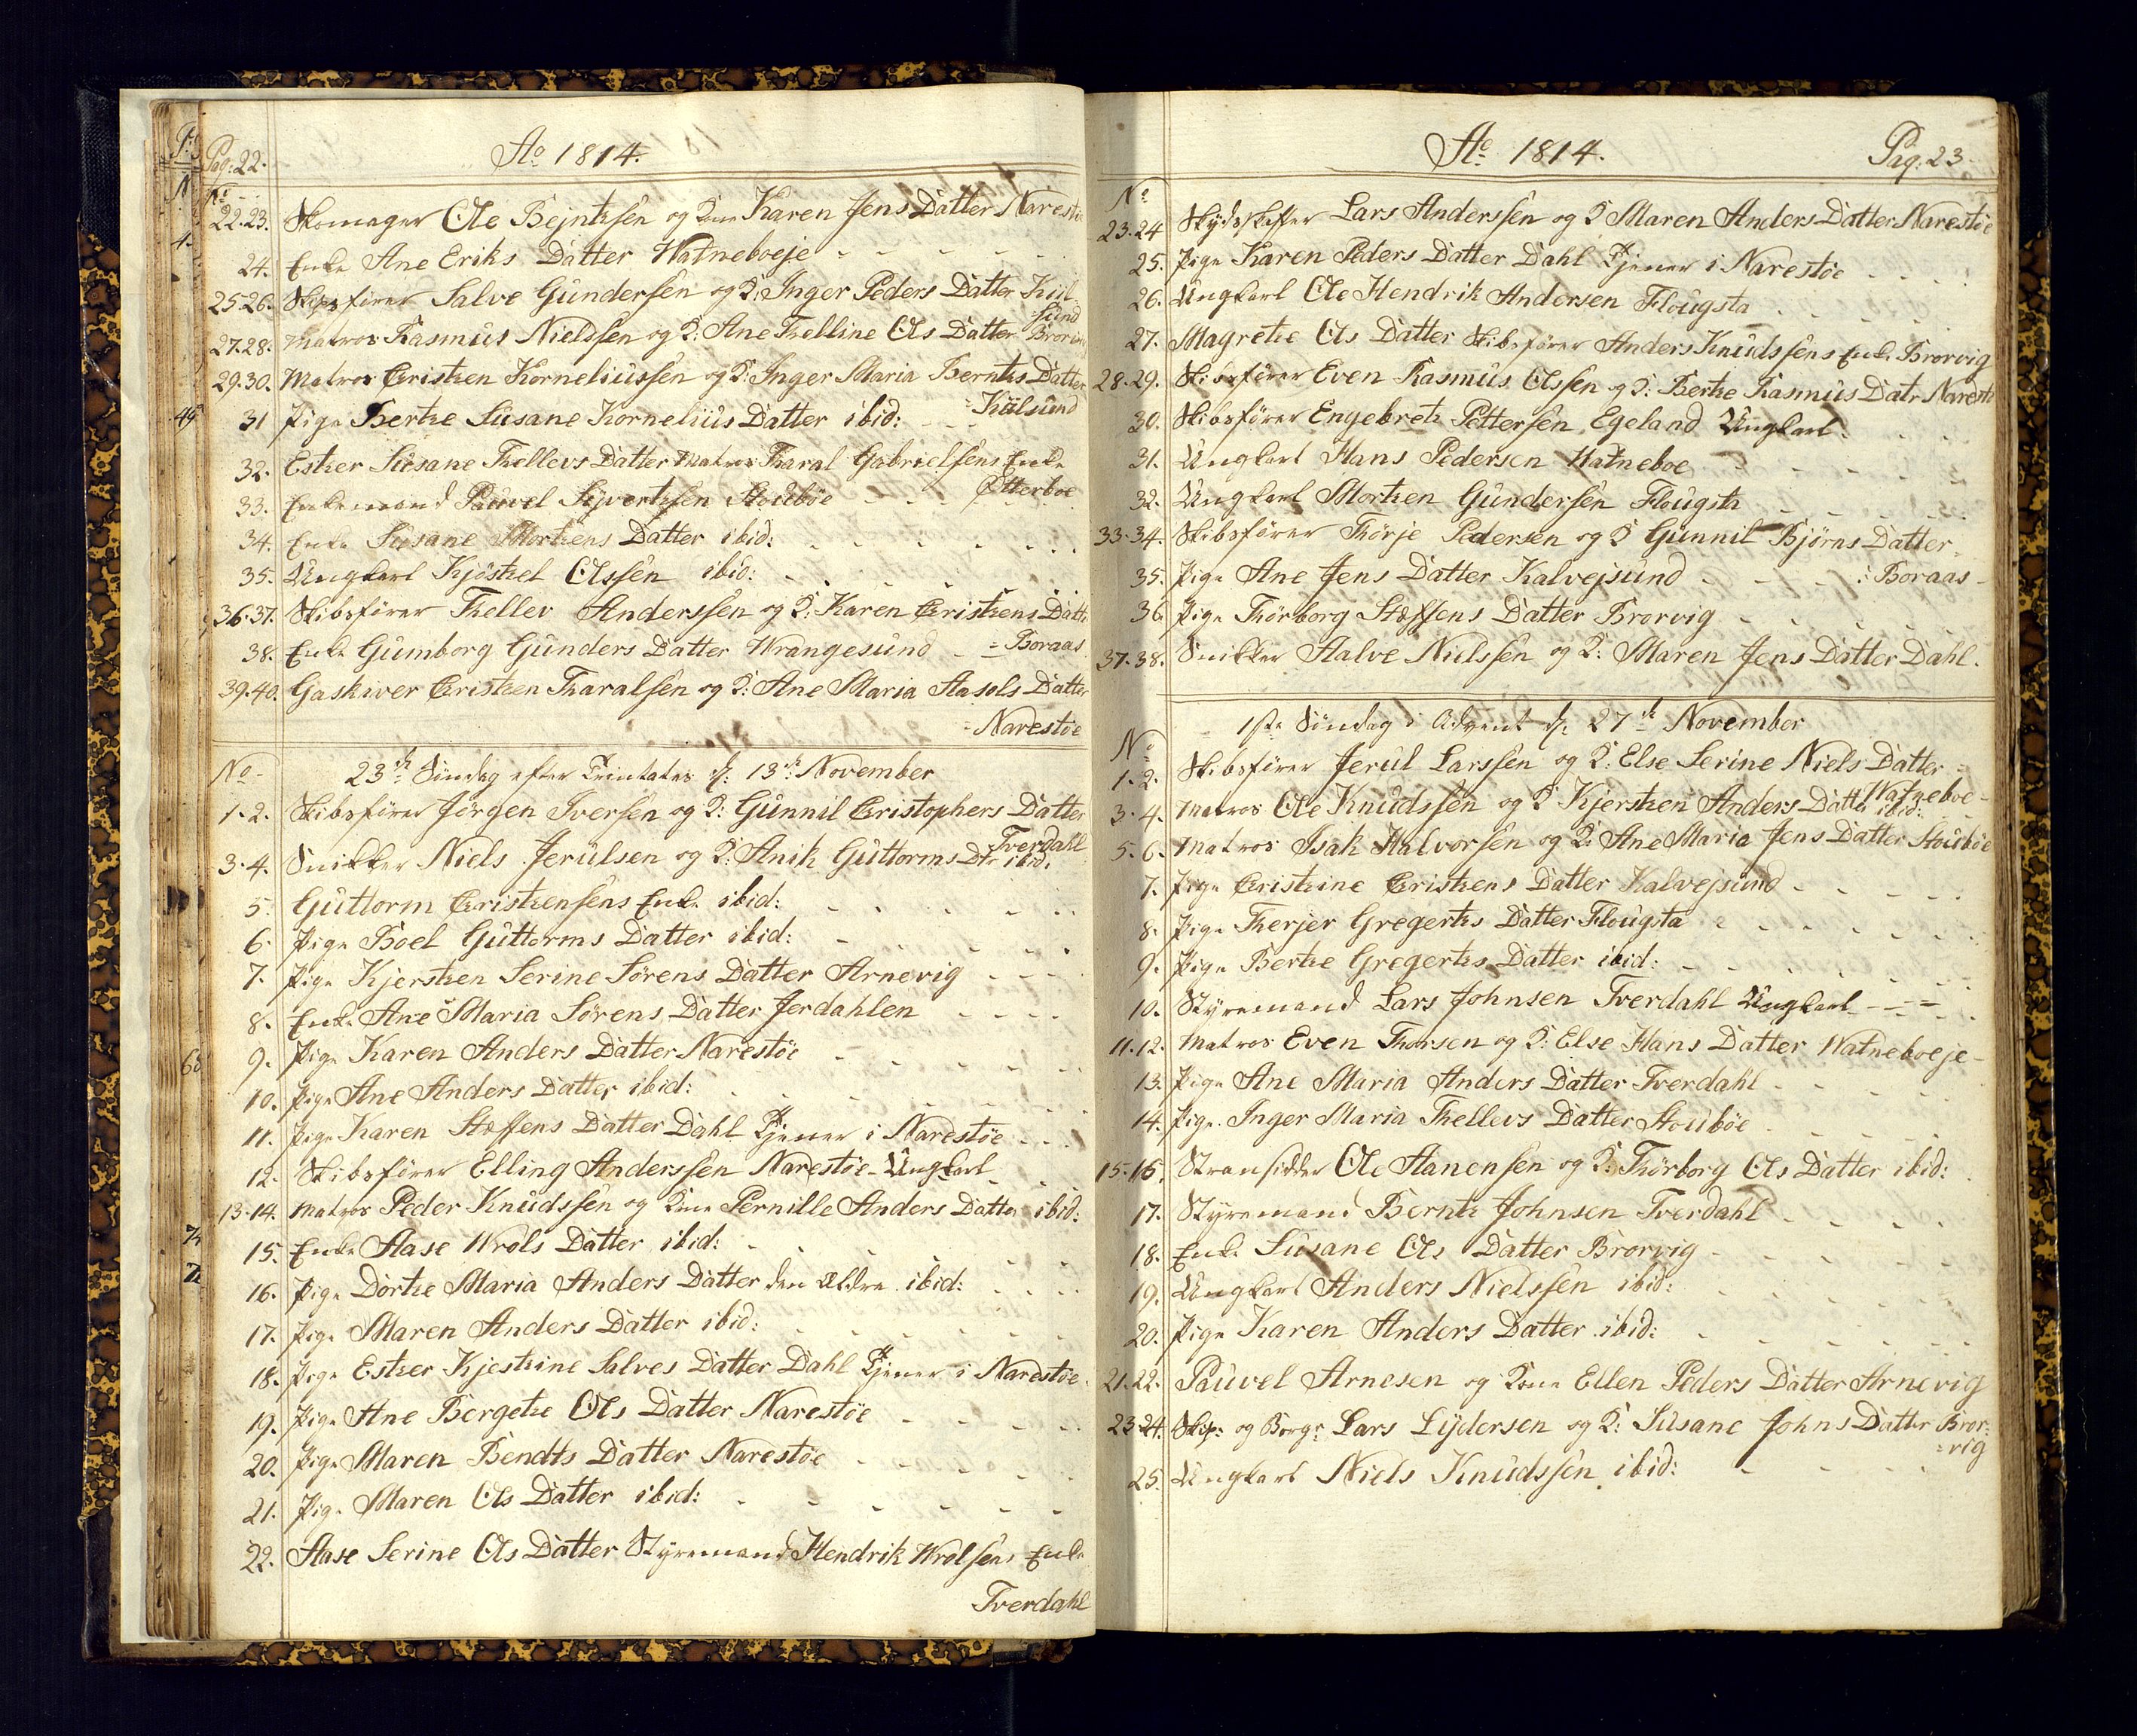 Pag: 22.
Ao 1814.
No
22.23. Skomager Ole Bejntsen og Kone Karen Jens Datter Narestøe
24. Enke Ane Eriks Datter Watneboeje
25.26. Skipsfører Salve Gundersen og K: Inger Peders Datter Kül-
sund
27.28. Matros Rasmus Nielssen og K: Ane Thelline Ols Datter Brorvig
29.30. Matros Cristhen Korneliussen og K: Inger Maria Bernths Datter
31 Pige Berthe Susane Kornelius Datter ibid: = Külsund
32. Esther Susane Thellevs Datter Matros Tharal Gabrielsens Enke
33. Enkemand Pauvel Sivertsen Stoubøe Otterboe
34. Enke Susane Morthens Datter ibid:
35. Ungkarl Kjösthel Olssen ibid:
36.37. Skibsfører Thellev Anderssen og K: Karen Cristhens Datter
38. Enke Gumborg Gunders Datter Wrangesund = Boraas
39.40. Gaskiver Cristhen Tharalsen og K: Ane Maria Aasols Datter
= Narestöe
No 23de Söndag efter Trinitates d: 13de November
1.2. Skibsfører Jörgen Iversen og K: Gunnil Cristophers Datter
Tverdahl
3.4. Snikker Niels Jerulsen og K: Anih Guttorms Dtr ibid:
5. Guttorm Cristhensens Enke ibid:
6. Pige Boel Guttorms Datter ibid:
7. Pige Kjersthen Serine Sörens Datter Arnevig
8. Enke Ane Maria Sörens Datter Jerdahlen
9. Pige Karen Anders Datter Narestöe
10. Pige Ane Anders Datter ibid:
11. Pige Karen Steffens Datter Dahl Tjener i Narestöe
12. Skibsfører Elling Anderssen Narestöe Ungkarl
13.14. Matros Peder Knudssen og Kone Pernille Anders Datter ibid:
15. Enke Aase Wrols Datter ibid:
16. Pige Dorthe Maria Anders Datter den Ældre ibid:
17. Pige Maren Anders Datter ibid:
18. Pige Esther Kjesthine Salves Datter Dahl Tjener i Narestöe
19. Pige Ane Bergethe Ols Datter Narestöe
20. Pige Maren Bendts Datter Narestöe
21. Pige Maren Ols Datter ibid:
22. Aase Serine Ols Datter Styremand Hendrik Wrolsens Enke
Tverdahl
Ao 1814.
Pag. 23
No
23.24 Skydsskaffer Lars Anderssen og K Maren Anders Datter Narestöe
25. Pige Karen Peders Datter Dahl Tjener i Narestöe
26. Ungkarl Ole Hendrik Andersen Flougsta
27. Magrethe Ols Datter Skibsfører Anders Knudssens Enke Brorvig
28.29. Skibsfører Even Rasmus Olssen og K: Berthe Rasmus Datr Narestö
30. Skibsfører Engebreth Pettersen Egeland Ungkarl
31. Ungkarl Hans Pedersen Watneboe
32. Ungkarl Morthen Gundersen Flougsta
33.34. Skibsfører Thörje Pedersen og K Gunnil Björns Datter
35. Pige Ane Jens Datter Kalvejsund : Boraas
36 Pige Thörborg Steffens Datter Brorvig
37.38. Snikker Aalve Nielssen og K: Maren Jens Datter Dahl.
1ste Söndag i Advent d: 27de November
No
1.2. Skibsfører Jerul Larssen og K: Else Serine Niels Datter
Watneboe
3.4. Matros Ole Knudssen og K Kjersthen Anders Datter ibid:
5.6. Matros Isak Halvorsen og K: Ane Maria Jens Datter Stoubøe
7. Pige Cristhine Cristhens Datter Kalvejsund
8. Pige Therjer Gregerths Datter Flougsta
9. Pige Berthe Gregerths Datter ibid:
10. Styremand Lars Johnsen Tverdahl Ungkarl
11.12. Matros Even Thorsen og K: Else Hans Datter Watneboeje
13. Pige Ane Maria Anders Datter Tverdahl
14. Pige Inger Maria Thellevs Datter Stoubøe
15.16. Stransidder Ole Aanensen og K: Thörborg Ols Datter ibid:
17. Styremand Bernth Johnsen Tverdahl
18. Enke Susane Ols Datter Brorvig
19. Ungkarl Anders Nielssen ibid:
20. Pige Karen Anders Datter ibid:
21.22. Pauvel Arnesen og Kone Ellen Peders Datter Arnevig
23.24. Skip: og Borg: Lars Lydersen og K: Susane Johns Datter Bror-
=vig
25. Ungkarl Niels Knudssen ibid: